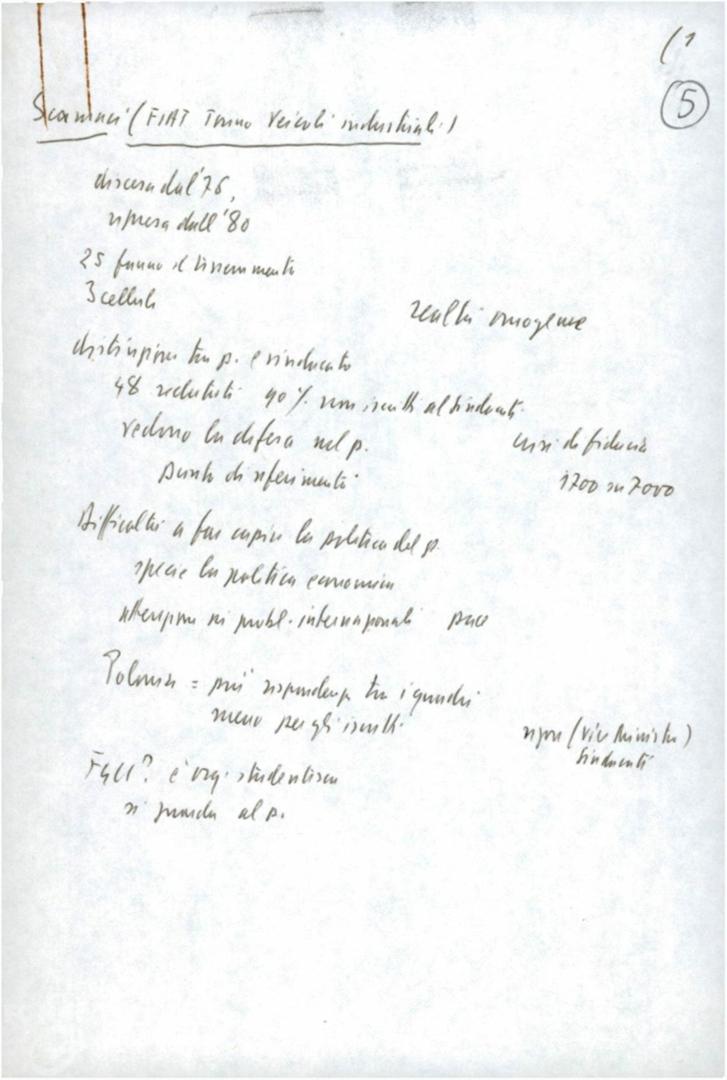 (1
5
Scannaci (FIAT Torino Veicoli industriali)
discesa dal '76,
ripresa dall'80
25 fanno il tesseramento
3 cellule
realtà omogenee
distinzione tra p. e sindacato
48 reclutati 90% non iscritti al sindacato
vedono la difesa nel p.
crisi di fiducia
punto di riferimento
1700 su 7000
Difficoltà a far capire la politica del p.
specie la politica economica
attenzione ai probl. internazionali pace
Polonia = più rispondenza tra i quadri
meno per gli iscritti
(Vice Ministro)
Sindacati
FGCI? è org. studentesca
si guarda al p.